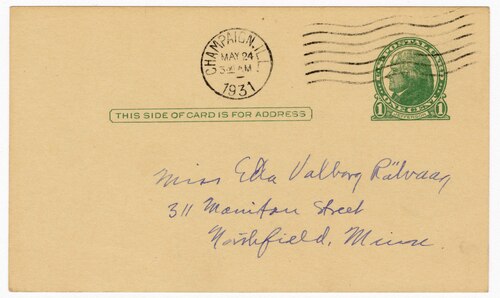 CHAMPAIGN, ILL.
MAY 24
1931
U.S. POSTAL CARD
1 ONE CENT 1
JEFFERSON
THIS SIDE OF CARD IS FOR ADDRESS
Miss Ella Valborg Rölvaag
311 Manitou Street
Northfield, Minn.